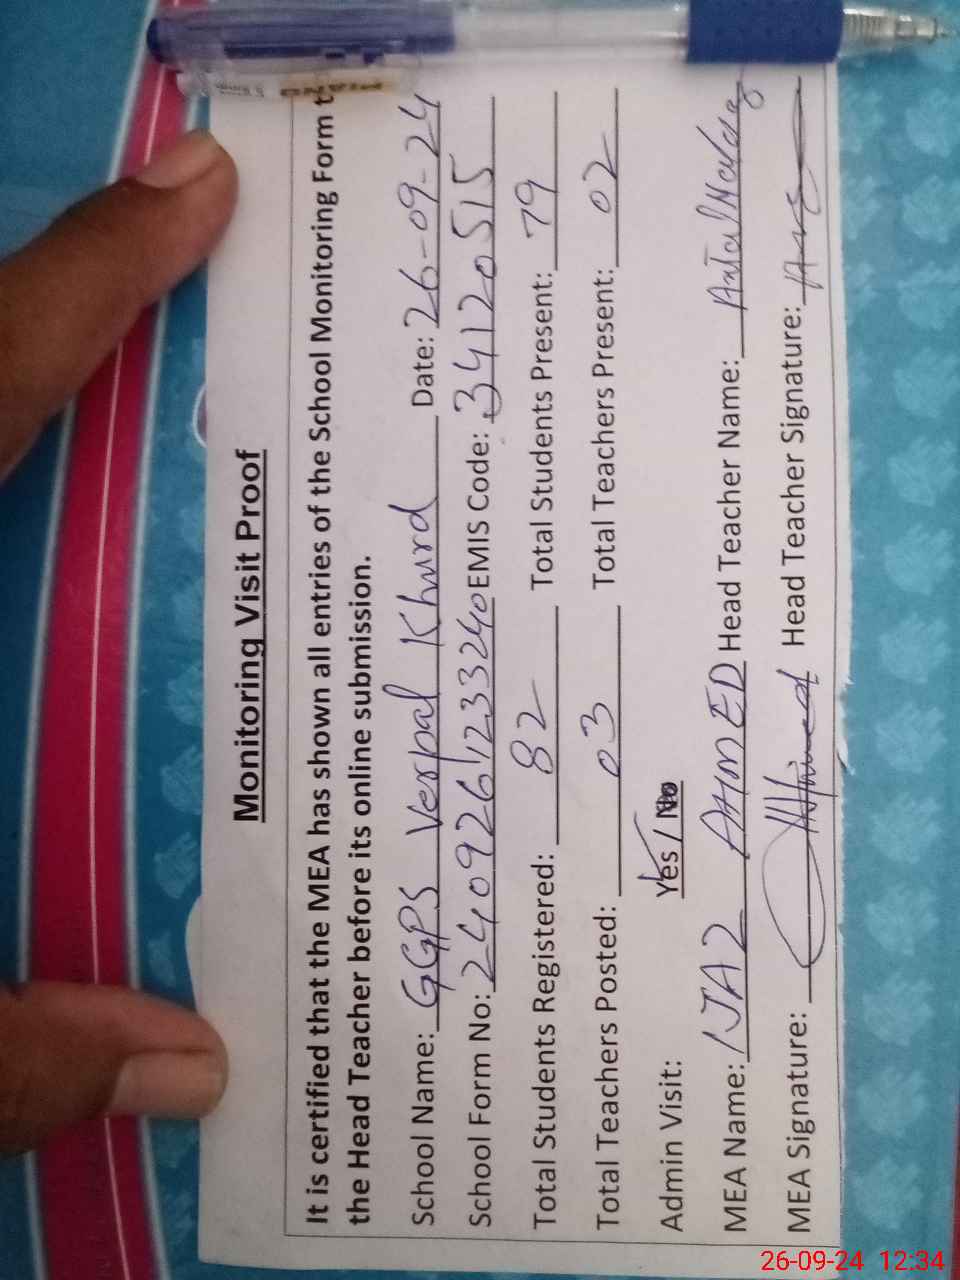 Monitoring Visit Proof
It is certified that the MEA has shown all entries of the School Monitoring Form t
the Head Teacher before its online submission.
School Name: GGPS Verpal Khurd Date: 26-09-24
School Form No: 2409261233240 EMIS Code: 34120515
Total Students Registered: 82 Total Students Present: 79
Total Teachers Posted: 03 Total Teachers Present: 02
Admin Visit: Yes / No
MEA Name: IJAZ AHMED Head Teacher Name:
MEA Signature: Head Teacher Signature:
26-09-24 12:34